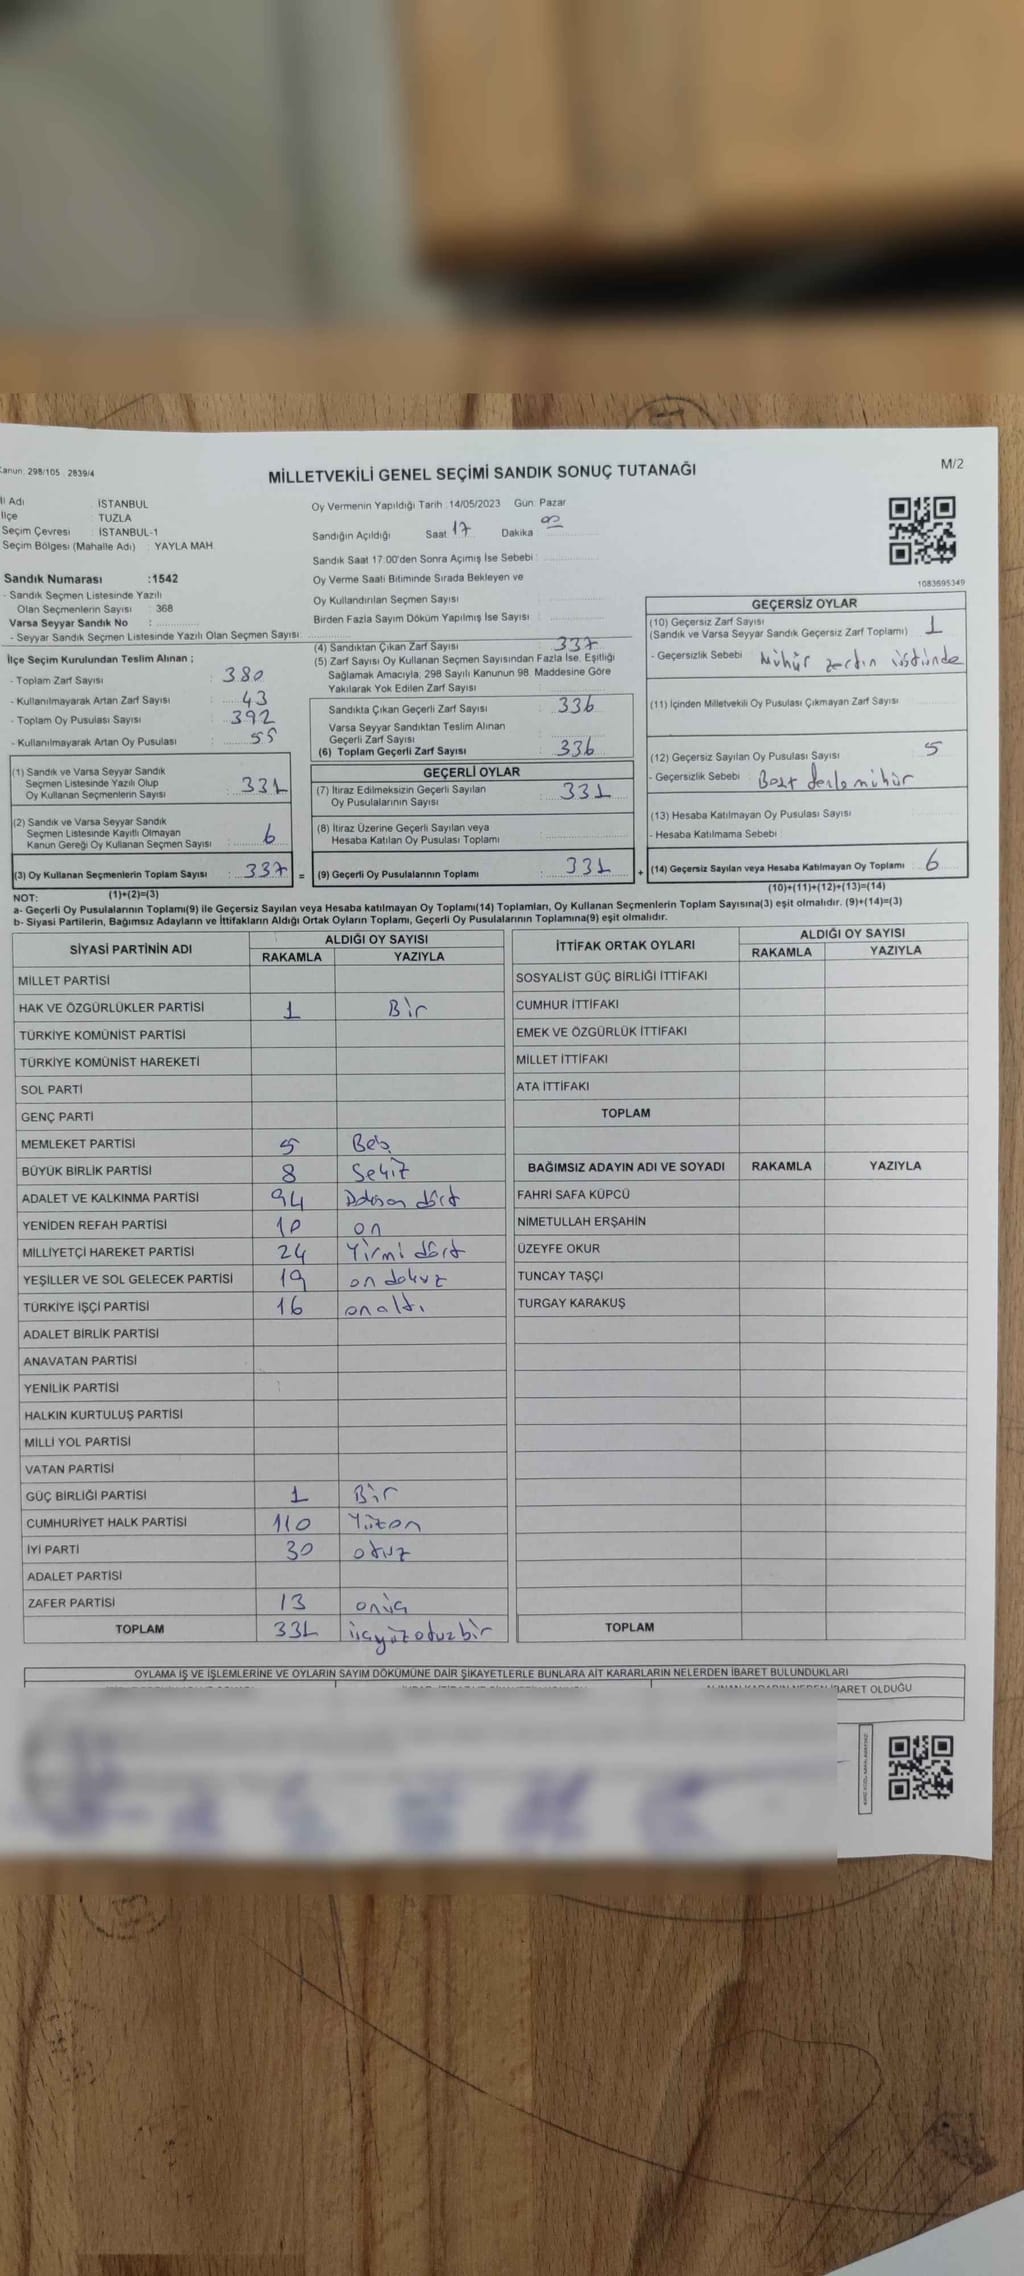 Kanun 298/105 2839/4
MİLLETVEKİLİ GENEL SEÇİMİ SANDIK SONUÇ TUTANAĞI
M/2
İl Adı İSTANBUL
İlçe TUZLA
Seçim Çevresi : İSTANBUL-1
Seçim Bölgesi (Mahalle Adı) : YAYLA MAH
Sandık Numarası :1542
- Sandık Seçmen Listesinde Yazılı
Olan Seçmenlerin Sayısı : 368
Varsa Seyyar Sandık No :
- Seyyar Sandık Seçmen Listesinde Yazılı Olan Seçmen Sayısı
İlçe Seçim Kurulundan Teslim Alınan ;
- Toplam Zarf Sayısı : 380
- Kullanılmayarak Artan Zarf Sayısı : 43
- Toplam Oy Pusulası Sayısı : 392
- Kullanılmayarak Artan Oy Pusulası : 55
(1) Sandık ve Varsa Seyyar Sandık
Seçmen Listesinde Yazılı Olup
Oy Kullanan Seçmenlerin Sayısı : 331
(2) Sandık ve Varsa Seyyar Sandık
Seçmen Listesinde Kayıtlı Olmayan
Kanun Gereği Oy Kullanan Seçmen Sayısı : 6
(3) Oy Kullanan Seçmenlerin Toplam Sayısı : 337 =
Oy Vermenin Yapıldığı Tarih : 14/05/2023 Gün: Pazar
Sandığın Açıldığı Saat 17 Dakika 00
Sandık Saat 17:00'den Sonra Açımış İse Sebebi :
Oy Verme Saati Bitiminde Sırada Bekleyen ve
Oy Kullandırılan Seçmen Sayısı :
Birden Fazla Sayım Döküm Yapılmış İse Sayısı :
(4) Sandıktan Çıkan Zarf Sayısı : 337
(5) Zarf Sayısı Oy Kullanan Seçmen Sayısından Fazla İse, Eşitliği
Sağlamak Amacıyla, 298 Sayılı Kanunun 98. Maddesine Göre
Yakılarak Yok Edilen Zarf Sayısı :
Sandıkta Çıkan Geçerli Zarf Sayısı : 336
Varsa Seyyar Sandıktan Teslim Alınan
Geçerli Zarf Sayısı :
(6) Toplam Geçerli Zarf Sayısı : 336
GEÇERLİ OYLAR
(7) İtiraz Edilmeksizin Geçerli Sayılan
Oy Pusulalarının Sayısı : 331
(8) İtiraz Üzerine Geçerli Sayılan veya
Hesaba Katılan Oy Pusulası Toplamı :
(9) Geçerli Oy Pusulalarının Toplamı : 331 +
1083695349
GEÇERSİZ OYLAR
(10) Geçersiz Zarf Sayısı
(Sandık ve Varsa Seyyar Sandık Geçersiz Zarf Toplamı) : 1
- Geçersizlik Sebebi : Mühür zarfın üstünde
(11) İçinden Milletvekili Oy Pusulası Çıkmayan Zarf Sayısı :
(12) Geçersiz Sayılan Oy Pusulası Sayısı : 5
- Geçersizlik Sebebi : Bazı fazla mühür
(13) Hesaba Katılmayan Oy Pusulası Sayısı :
- Hesaba Katılmama Sebebi :
(14) Geçersiz Sayılan veya Hesaba Katılmayan Oy Toplamı : 6
NOT: (1)+(2)=(3) (10)+(11)+(12)+(13)=(14)
a- Geçerli Oy Pusulalarının Toplamı(9) ile Geçersiz Sayılan veya Hesaba katılmayan Oy Toplamı(14) Toplamları, Oy Kullanan Seçmenlerin Toplam Sayısına(3) eşit olmalıdır. (9)+(14)=(3)
b- Siyasi Partilerin, Bağımsız Adayların ve İttifakların Aldığı Ortak Oyların Toplamı, Geçerli Oy Pusulalarının Toplamına(9) eşit olmalıdır.
SİYASİ PARTİNİN ADI ALDIĞI OY SAYISI
RAKAMLA YAZIYLA
MİLLET PARTİSİ
HAK VE ÖZGÜRLÜKLER PARTİSİ 1 Bir
TÜRKİYE KOMÜNİST PARTİSİ
TÜRKİYE KOMÜNİST HAREKETİ
SOL PARTİ
GENÇ PARTİ
MEMLEKET PARTİSİ 5 Beş
BÜYÜK BİRLİK PARTİSİ 8 Sekiz
ADALET VE KALKINMA PARTİSİ 94 Doksan dört
YENİDEN REFAH PARTİSİ 10 on
MİLLİYETÇİ HAREKET PARTİSİ 24 Yirmi dört
YEŞİLLER VE SOL GELECEK PARTİSİ 19 on dokuz
TÜRKİYE İŞÇİ PARTİSİ 16 on altı
ADALET BİRLİK PARTİSİ
ANAVATAN PARTİSİ
YENİLİK PARTİSİ
HALKIN KURTULUŞ PARTİSİ
MİLLİ YOL PARTİSİ
VATAN PARTİSİ
GÜÇ BİRLİĞİ PARTİSİ 1 Bir
CUMHURİYET HALK PARTİSİ 110 Yüzon
İYİ PARTİ 30 otuz
ADALET PARTİSİ
ZAFER PARTİSİ 13 onüç
TOPLAM 331 üçyüzotuzbir
İTTİFAK ORTAK OYLARI ALDIĞI OY SAYISI
RAKAMLA YAZIYLA
SOSYALİST GÜÇ BİRLİĞİ İTTİFAKI
CUMHUR İTTİFAKI
EMEK VE ÖZGÜRLÜK İTTİFAKI
MİLLET İTTİFAKI
ATA İTTİFAKI
TOPLAM
BAĞIMSIZ ADAYIN ADI VE SOYADI RAKAMLA YAZIYLA
FAHRİ SAFA KÜPCÜ
NİMETULLAH ERŞAHİN
ÜZEYFE OKUR
TUNCAY TAŞÇI
TURGAY KARAKUŞ
TOPLAM
OYLAMA İŞ VE İŞLEMLERİNE VE OYLARIN SAYIM DÖKÜMÜNE DAİR ŞİKAYETLERLE BUNLARA AİT KARARLARIN NELERDEN İBARET BULUNDUKLARI
İBARET OLDUĞU